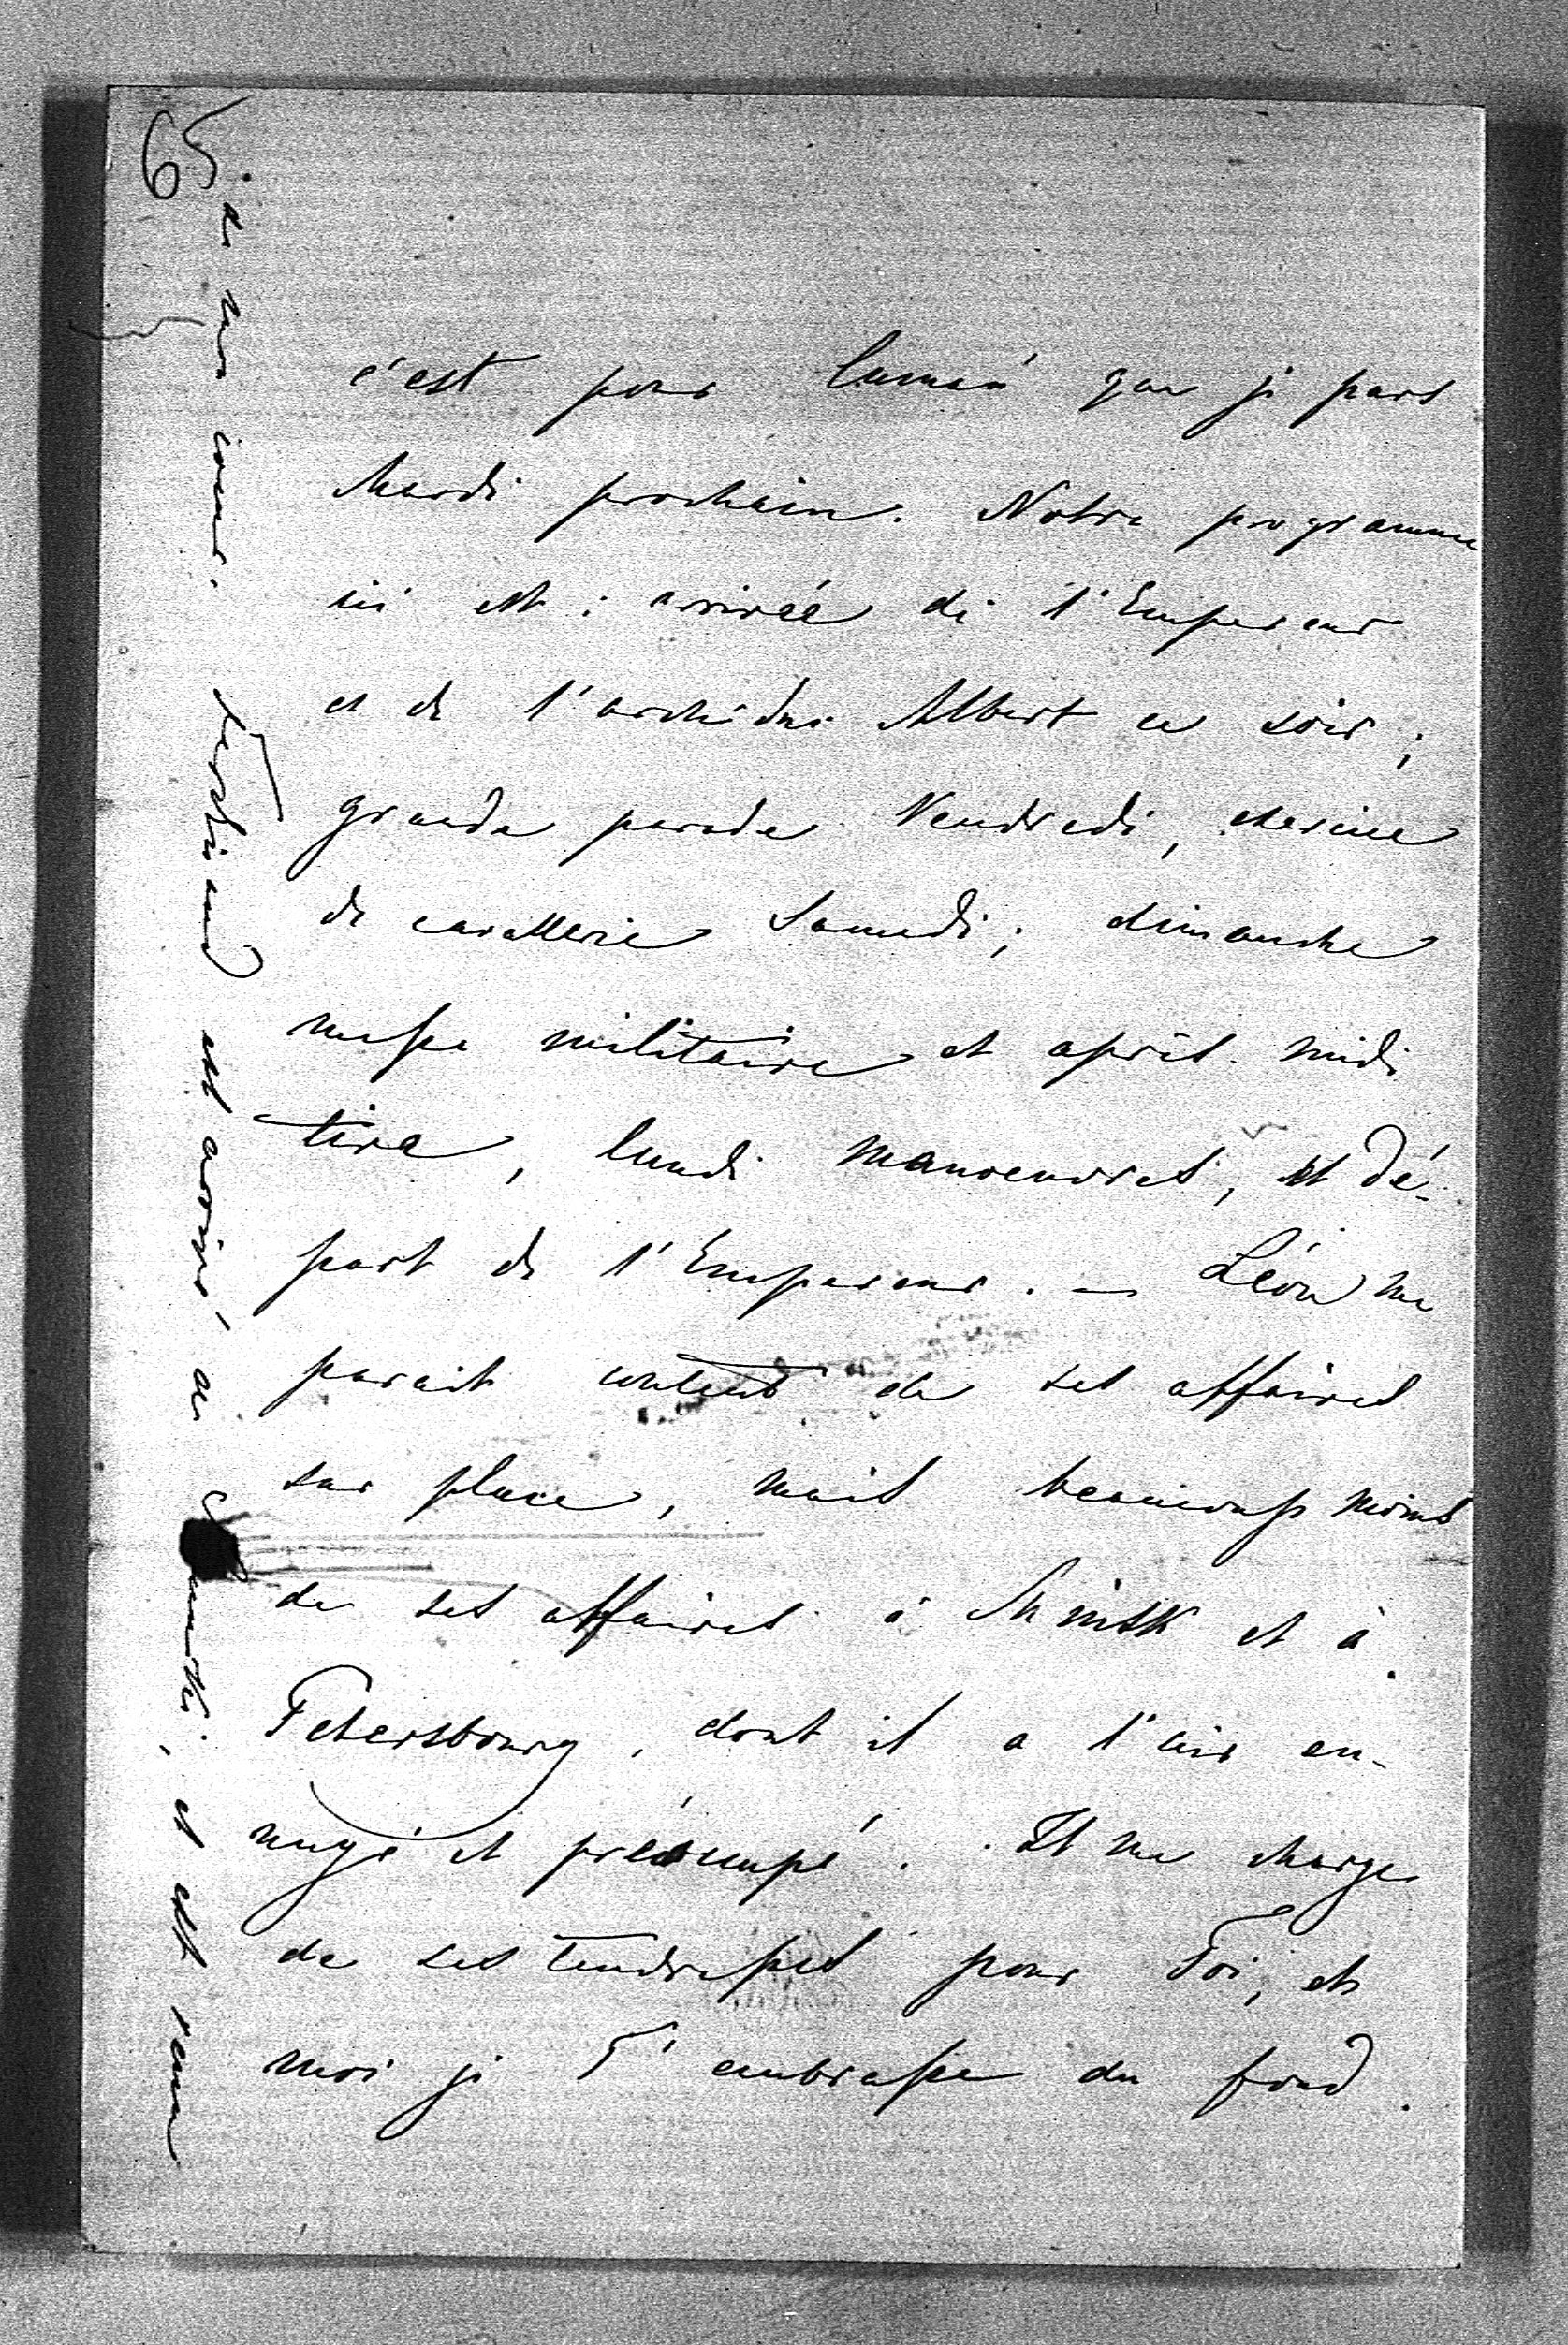 65
c'est pour que je pars
Mardi prochain. Notre programme
ici est : arrivée de l'Empereur
et de l'archiduc Albert ce soir ;
grande parade Vendredi, exercice
de cavallerie Samedi ; dimanche
messe militaire et après midi
tire, lundi manoeuvres, et dé-
part de l'Empereur. — Léon me
parait content de ses affaires
sur place, mais beaucoup moins
de ses affaires à Minsk et à
Petersbourg, dont il a l'air en-
nuyé et préoccupé. Il me charge
de ses tendresses pour Toi, et
moi je T'embrasse du fond
de mon coeur. Ferdinand est arrivé, et est venu